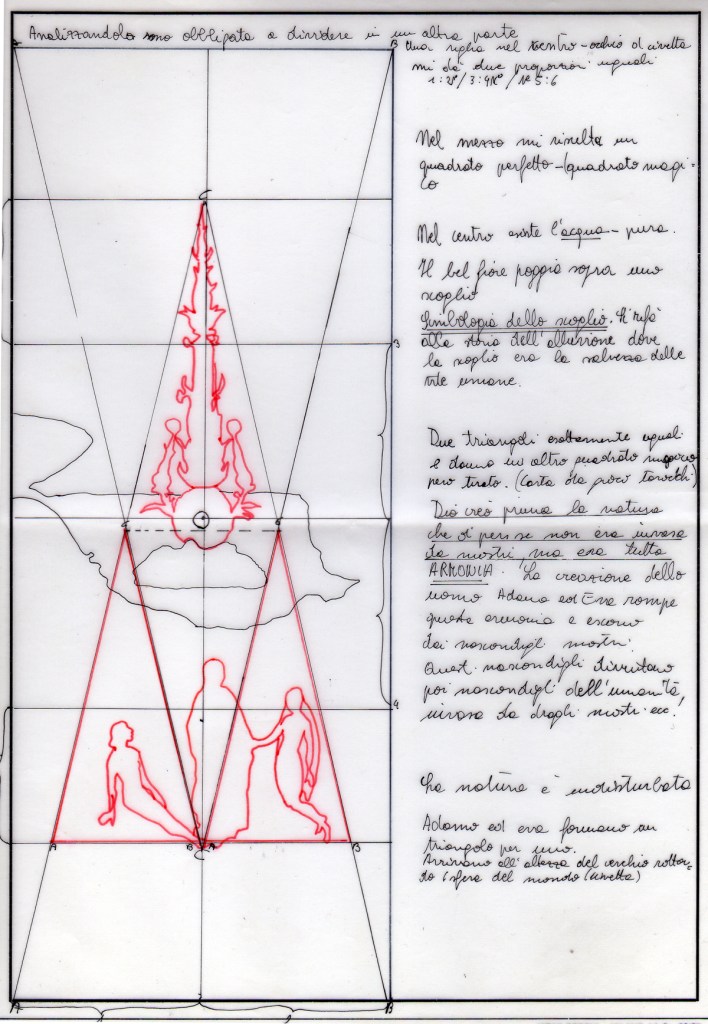 Analizzandolo sono obbligata a dividere in un altra parte
Una riglia nel centro-occhio d civetta
mi da due proporzioni uguali
Nel mezzo mi risulta un
quadrato perfetto-(quadrato magi-
co
Nel centro esiste l'acqua - pura.
Il bel fiore poggia sopra uno
scoglio
Simbologia dello scoglio. Si rifà
alla storia dell'alluvione dove
lo scoglio era la salvezza delle
vite umane.
Due triangoli esattamente uguali
e danno un altro quadrato
pero tirato. (Carta da gioco tarocchi)
Dio creò prima la natura
che d per se non era invasa
da mostri, ma era tutta
ARMONIA. La creazione dello
uomo Adamo ed Eva rompe
questa armonia e escono
dai nascondigli mostri.
Quest. nascondigli diventano
poi nascondigli dell'umanità,
invasa da draghi mostri ecc!
La natura è indisturbata
Adamo ed eva formano un
triangolo per uno.
Arrivano all'altezza del cerchio
do (sfera del mondo (civetta)
A
B
C
3
C
B
4
A
B
A
B
C
A
B